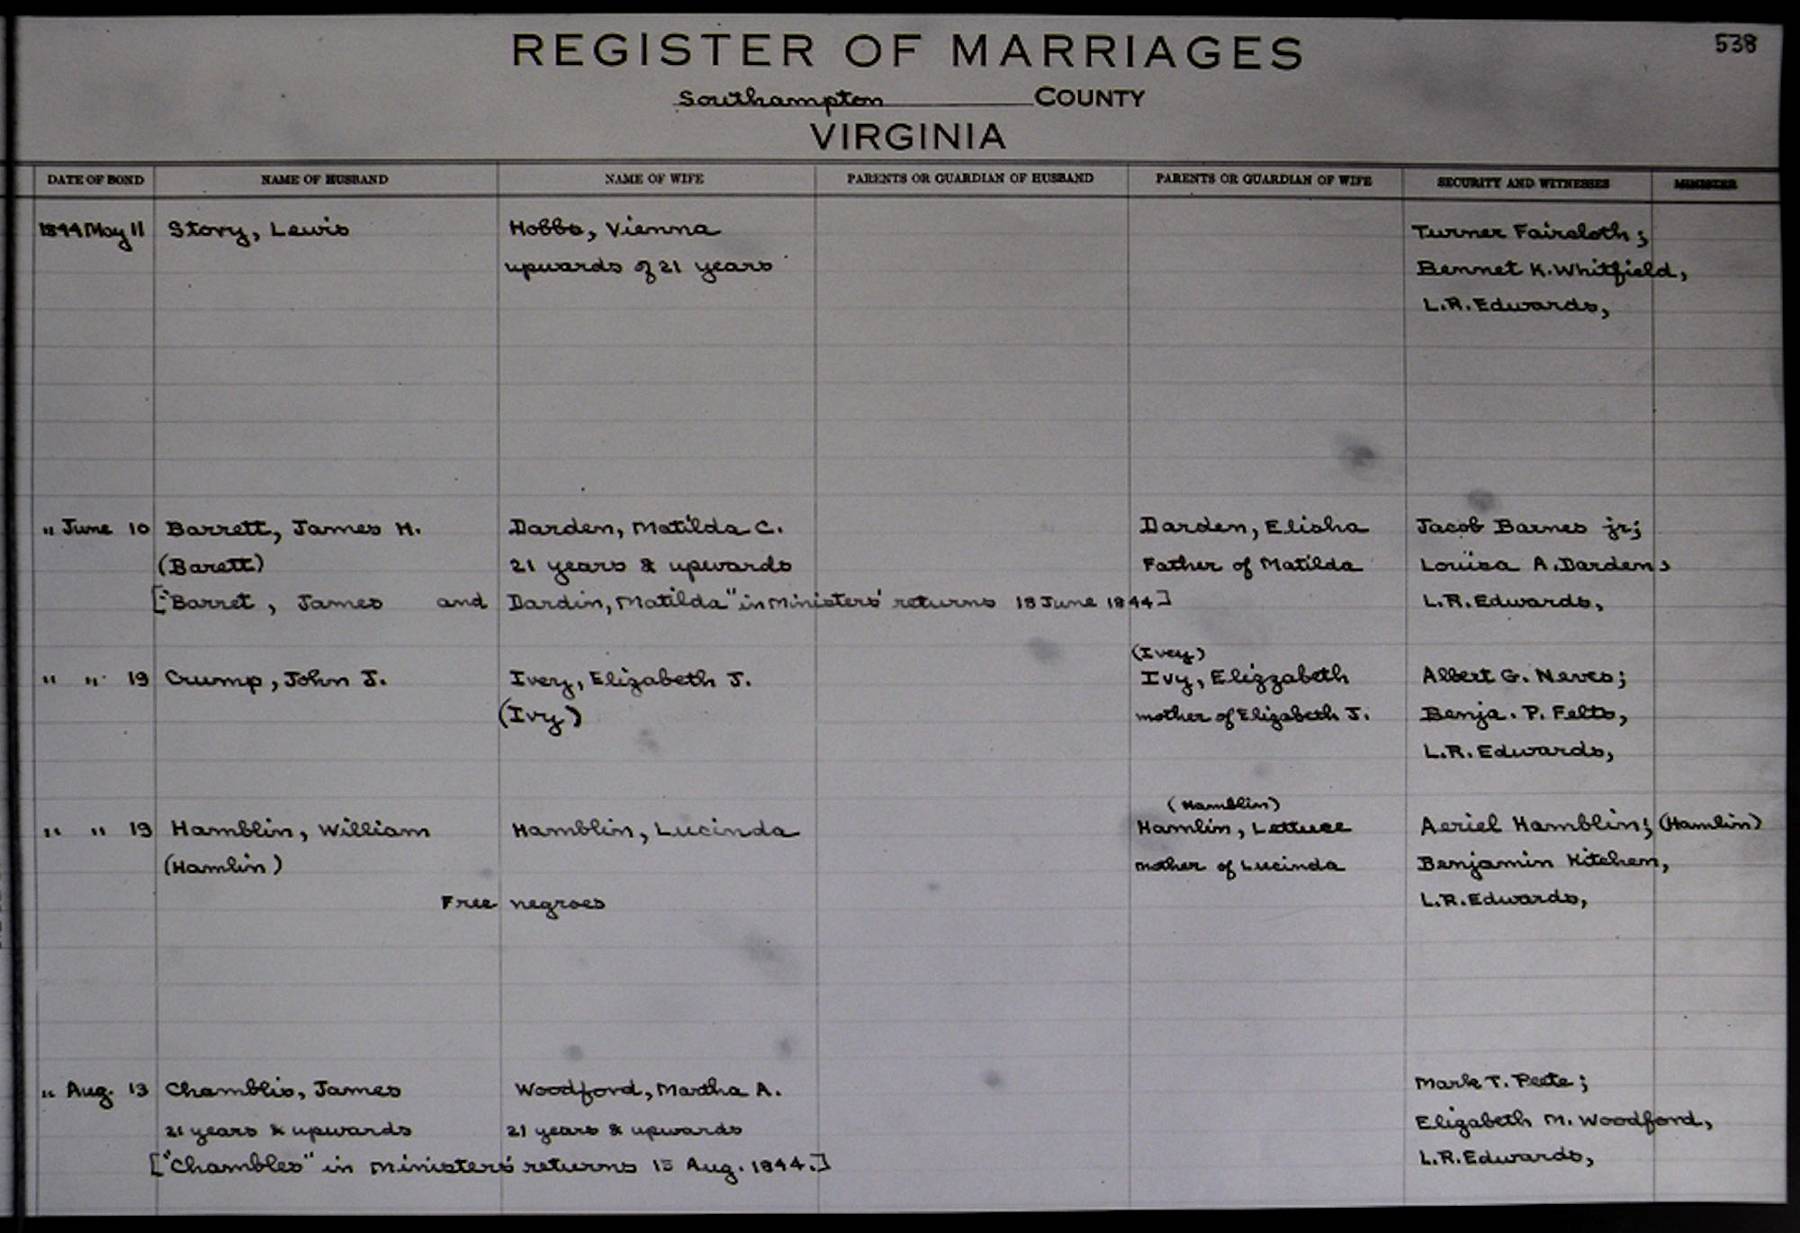 538
REGISTER OF MARRIAGES
Southampton COUNTY
VIRGINIA
DATE OF BOND NAME OF HUSBAND NAME OF WIFE PARENTS OR GUARDIAN OF HUSBAND PARENTS OR GUARDIAN OF WIFE SECURITY AND WITNESSES MINISTER
1844 May 11 Story, Lewis Hobbs, Vienna Turner Faircloth;
upwards of 21 years Bennet K. Whitfield,
L.R. Edwards,
" June 10 Barrett, James H. Darden, Matilda C. Darden, Elisha Jacob Barnes jr;
(Barett) 21 years & upwards Father of Matilda Louisa A. Darden,
["Barret, James and Dardin, Matilda" in Ministers' returns 18 June 1844] L.R. Edwards,
(Ivey)
" " 19 Crump, John J. Ivey, Elizabeth J. Ivy, Elizzabeth Albert G. Neves;
(Ivy) mother of Elizabeth J. Benja. P. Felts,
L.R. Edwards,
(Hamblin)
" " 19 Hamblin, William Hamblin, Lucinda Hamlin, Lettuce Aeriel Hamblin; (Hamlin)
(Hamlin) mother of Lucinda Benjamin Kitchen,
Free negroes L.R. Edwards,
" Aug. 13 Chamblis, James Woodford, Martha A. Mark T. Peete;
21 years & upwards 21 years & upwards Elizabeth M. Woodford,
["Chambles" in Ministers' returns 15 Aug. 1844.] L.R. Edwards,